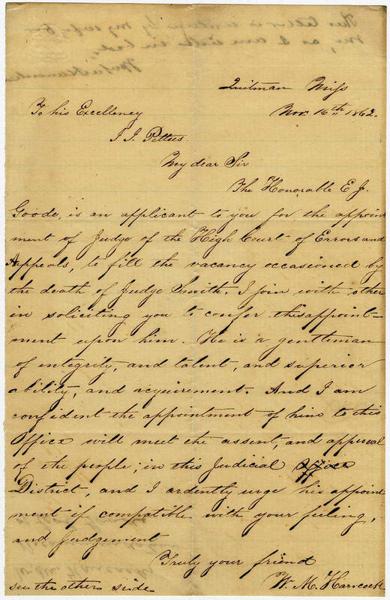 Quitman Miss
Nov. 16th 1862.
To his Excellency
J. J. Pettus
My dear Sir
The Honorable E. J.
Goode, is an applicant to you for the appoint
ment of Judge of the High Court of Errors and
Appeals, to fill the vacancy occasioned by
the death of Judge Smith. I join with others
in soliciting you to confer this appoint-
ment upon him. He is a gentleman
of integrity, and talent, and superior
ability, and acquirement. And I am
confident the appointment of him to this
Office will meet the assent, and approval
of the people; in this Judicial
District, and I ardently urge his appoint
ment if compatible with your feeling,
and Judgement
Truly your friend
see the other side W. M. Hancock